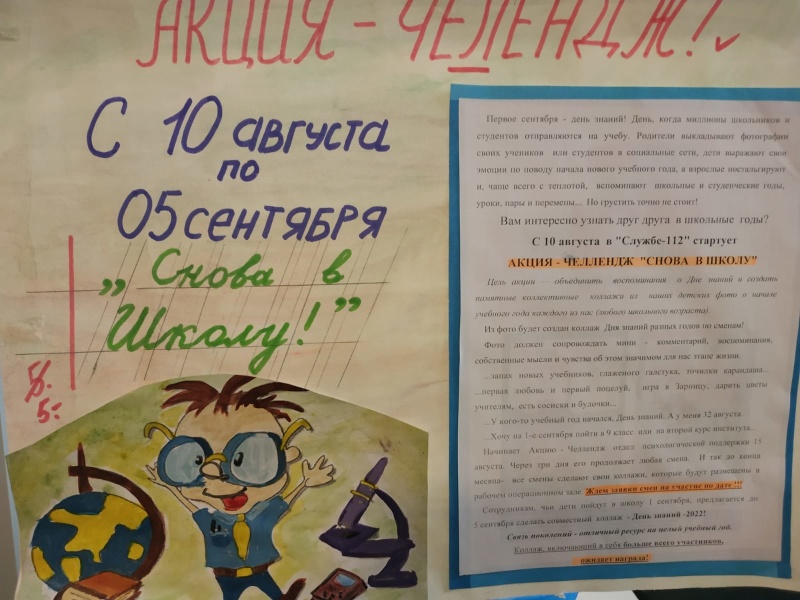 АКЦИЯ - ЧЕЛЕНДЖ!
С 10 августа
по
05 сентября
„Снова в
Школу!”
5.
5-
Первое сентября - день знаний! День, когда миллионы школьников и
студентов отправляются на учебу. Родители выкладывают фотографии
своих учеников или студентов в социальные сети, дети выражают свои
эмоции по поводу начала нового учебного года, а взрослые ностальгируют
и, чаще всего с теплотой, вспоминают школьные и студенческие годы,
уроки, пары и перемены... Но грустить точно не стоит!
Вам интересно узнать друг друга в школьные годы?
С 10 августа в "Службе-112" стартует
АКЦИЯ - ЧЕЛЛЕНДЖ "СНОВА В ШКОЛУ"
Цель акции – объединить воспоминания о Дне знаний и создать
памятные коллективные коллажи из наших детских фото о начале
учебного года каждого из нас (любого школьного возраста).
Из фото будет создан коллаж Дня знаний разных годов по сменам!
Фото должен сопровождать мини - комментарий, воспоминания,
собственные мысли и чувства об этом значимом для нас этапе жизни.
...запах новых учебников, глаженого галстука, точилки карандаша...
...первая любовь и первый поцелуй, игра в Зарницу, дарить цветы
учителям, есть сосиски и булочки...
...У кого-то учебный год начался, День знаний. А у меня 32 августа.
...Хочу на 1-е сентября пойти в 9 класс или на второй курс института...
Начинает Акцию - Челлендж отдел психологической поддержки 15
августа. Через три дня его продолжает любая смена. И так до конца
месяца- все смены сделают свои коллажи, которые будут размещены в
рабочем операционном зале. Ждем заявки смен на участие по дате !!!
Сотрудникам, чьи дети пойдут в школу 1 сентября, предлагается до
5 сентября сделать совместный коллаж - День знаний -2022!
Связь поколений - отличный ресурс на целый учебный год.
Коллаж, включающий в себя больше всего участников,
ожидает награда!